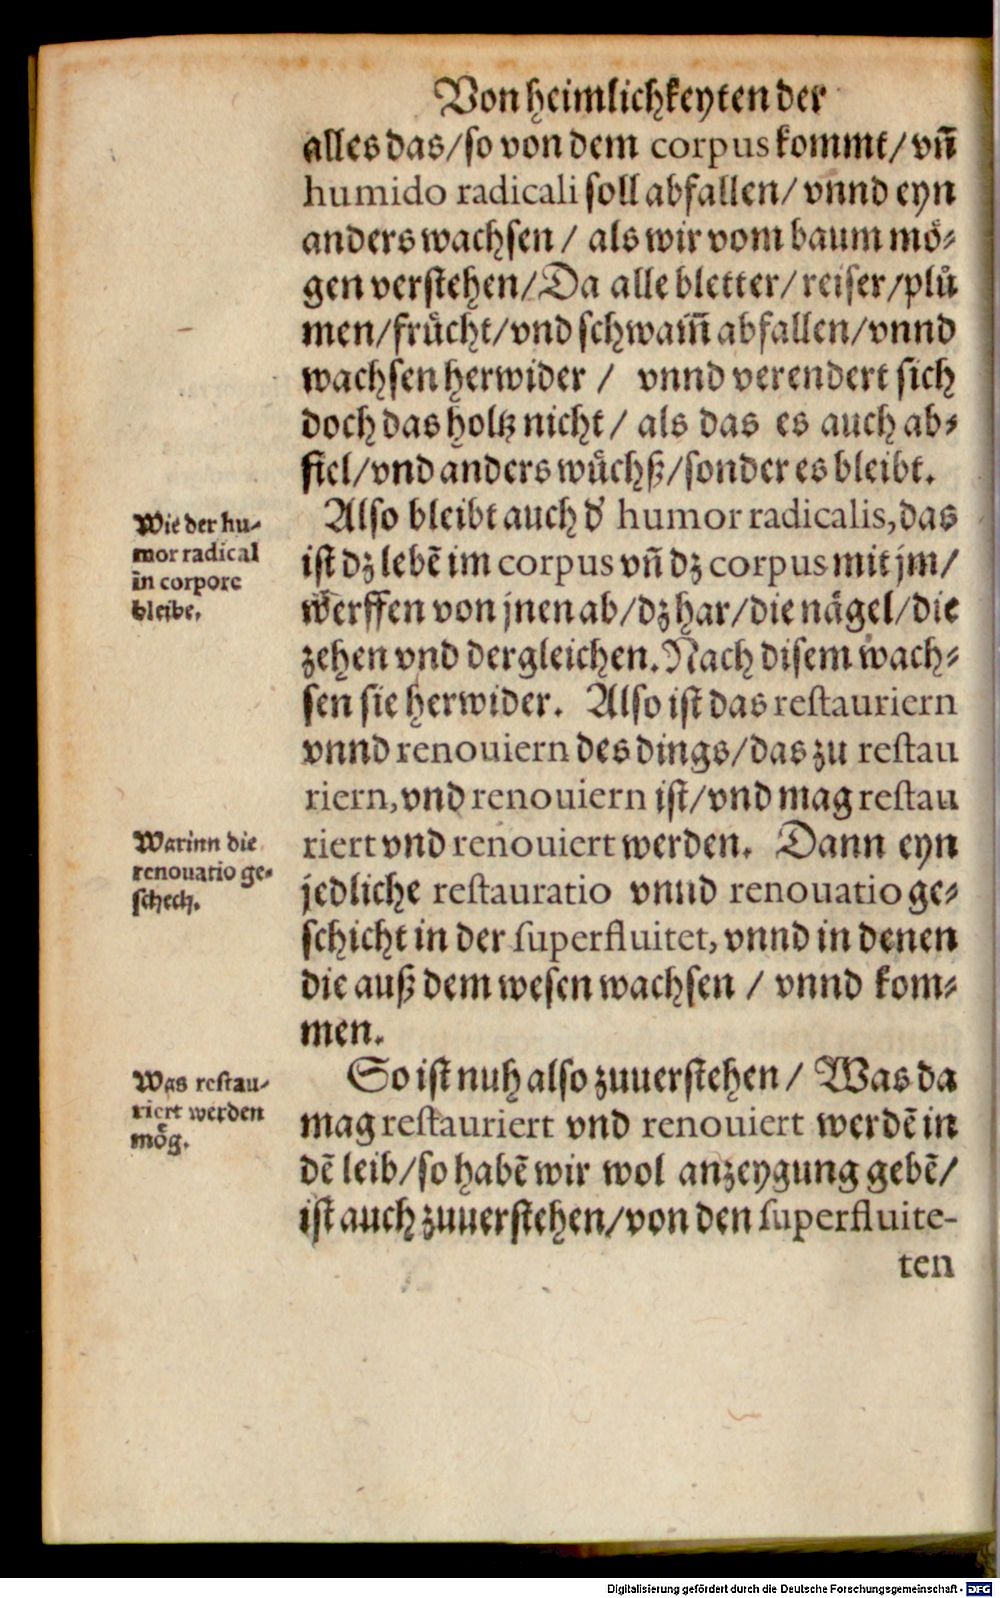 Von heimlichkeyten der
alles das/so von dem corpus kommt/vñ
humido radicali soll abfallen/vnnd eyn
anders wachsen / als wir vom baum moͤ⸗
gen verstehen/Da alle bletter/reiser/pluͤ
men/fruͤcht/vnd schwam̃ abfallen/vnnd
wachsen herwider / vnnd verendert sich
doch das holtz nicht/ als das es auch ab⸗
fiel/vnd anders wuͤchß/sonder es bleibt.
Wie der hu⸗
mor radical
in corpore
bleibe.
Also bleibt auch d' humor radicalis,das
ist dz lebẽ im corpus vñ dz corpus mit jm/
werffen von jnen ab/dz har/die naͤgel/die
zehen vnd dergleichen.Nach disem wach⸗
sen sie herwider. Also ist das restauriern
vnnd renouiern des dings/das zu restau
riern,vnd renouiern ist/vnd mag restau
Warinn die
renouatio ge⸗
schech.
riert vnd renouiert werden. Dann eyn
jedliche restauratio vnnd renouatio ge⸗
schicht in der superfluitet, vnnd in denen
die auß dem wesen wachsen / vnnd kom⸗
men.
Was restau⸗
riert werden
moͤg.
So ist nuh also zuuerstehen/ Was da
mag restauriert vnd renouiert werdẽ in
dẽ leib/so habẽ wir wol anzeygung gebẽ/
ist auch zuuerstehen/von den superfluite-
ten
Digitalisierung gefördert durch die Deutsche Forschungsgemeinschaft - DFG